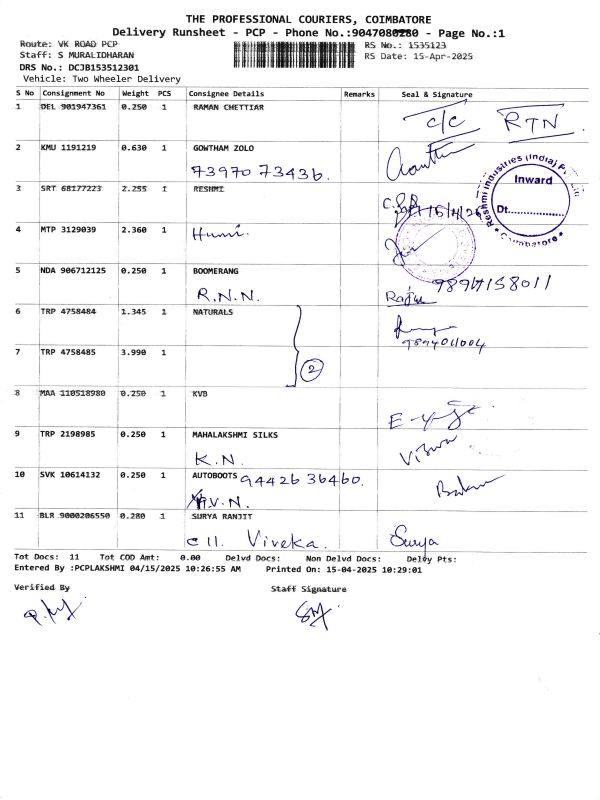 THE PROFESSIONAL COURIERS, COIMBATORE
Delivery Runsheet - PCP - Phone No.:9047080280 - Page No.:1
Route: VK ROAD PCP RS No.: 1535123
Staff: S MURALIDHARAN RS Date: 15-Apr-2025
DRS No.: DCJB153512301
Vehicle: Two Wheeler Delivery
S No Consignment No Weight PCS Consignee Details Remarks Seal & Signature
1 DEL 901947361 0.250 1 RAMAN CHETTIAR
C/C RTN
2 KMU 1191219 0.630 1 GOWTHAM ZOLO
73970 73436.
Reshmi Industries (India) P
Inward
Dt.
Coimbatore
3 SRT 68177223 2.255 1 RESHMI
4 MTP 3129039 2.360 1
Humi.
5 NDA 906712125 0.250 1 BOOMERANG
9894158011
R.N.N. Raju
6 TRP 4758484 1.345 1 NATURALS
9894011004
7 TRP 4758485 3.990 1
2
8 MAA 110518980 0.250 1 KVB
9 TRP 2198985 0.250 1 MAHALAKSHMI SILKS
K.N.
10 SVK 10614132 0.250 1 AUTOBOOTS 94426 36460.
V.N.
11 BLR 9000206550 0.280 1 SURYA RANJIT
C 11. Viveka. Surya
Tot Docs: 11 Tot COD Amt: 0.00 Delvd Docs: Non Delvd Docs: Delvy Pts:
Entered By :PCPLAKSHMI 04/15/2025 10:26:55 AM Printed On: 15-04-2025 10:29:01
Verified By Staff Signature